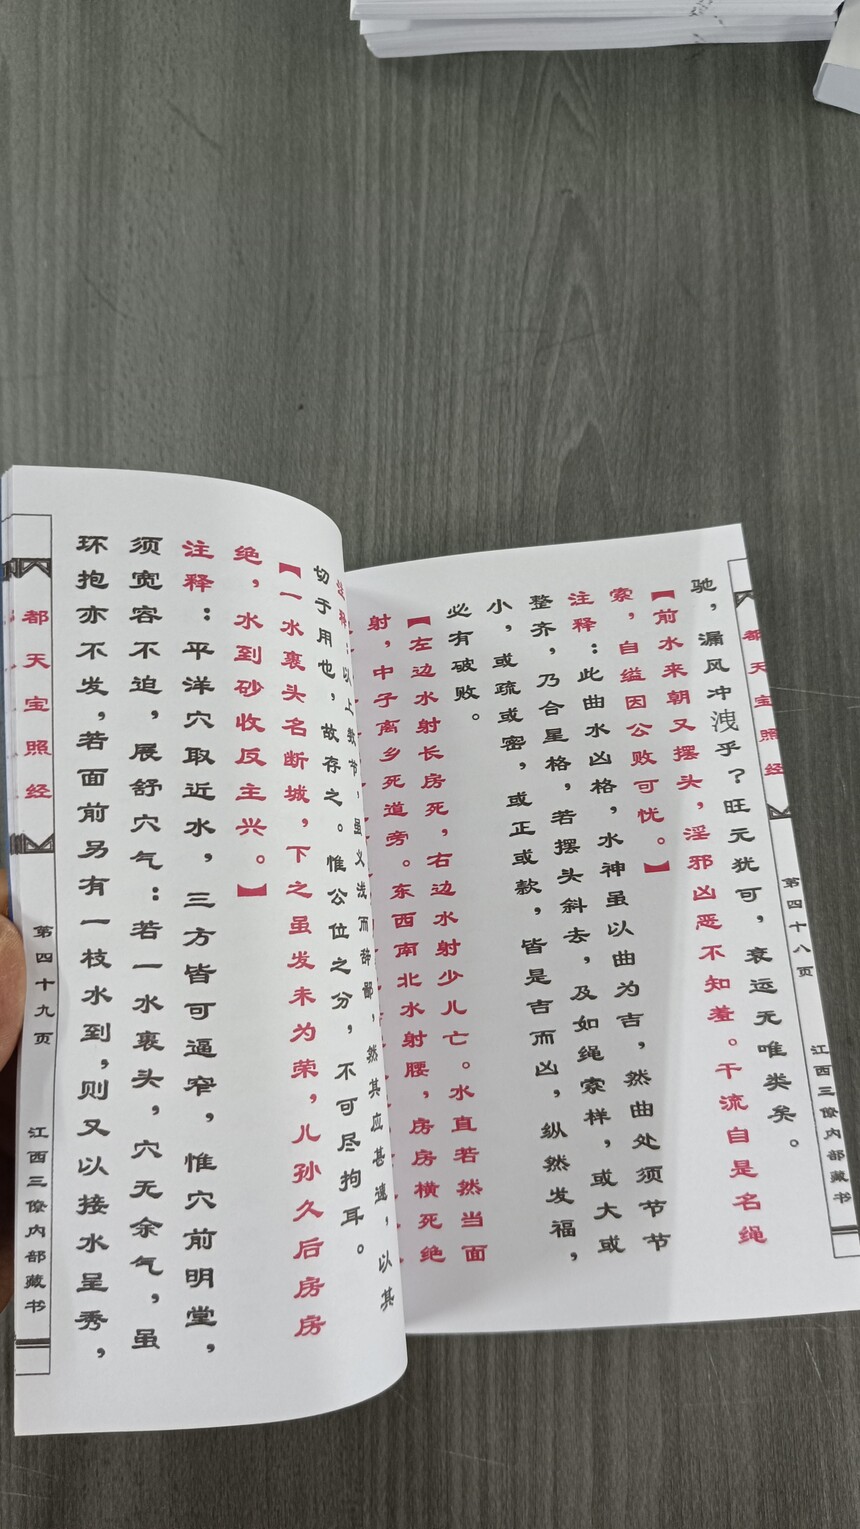 都天宝照经
第四十八页
江西三僚内部藏书
驰，漏风冲洩乎？旺元犹可，衰运无唯类矣。
【前水来朝又摆头，淫邪凶恶不知羞。干流自是名绳
索，自缢因公败可忧。】
注释：此曲水凶格，水神虽以曲为吉，然曲处须节节
整齐，乃合星格，若摆头斜去，及如绳索样，或大或
小，或疏或密，或正或欹，皆是吉而凶，纵然发福，
必有破败。
【左边水射长房死，右边水射少儿亡。水直若然当面
射，中子离乡死道旁。东西南北水射腰，房房横死绝
注释：以上数节，虽义浅而辞鄙，然其应甚速，以其
切于用也，故存之。惟公位之分，不可尽拘耳。
【一水裹头名断城，下之虽发未为荣，儿孙久后房房
绝，水到砂收反主兴。】
注释：平洋穴取近水，三方皆可逼窄，惟穴前明堂，
须宽容不迫，展舒穴气：若一水裹头，穴无余气，虽
环抱亦不发，若面前另有一枝水到，则又以接水呈秀，
都天宝照经
第四十九页
江西三僚内部藏书